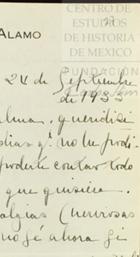 ALAMO
CENTRO
DE ESTUDIOS
DE HISTORIA
DE MEXICO
FUNDACIÓN
24 de Septiembre
de 1933
alma, queridísi
días q. no he podi
poderte contar todo
que quisiera.
alegrías (nerviosas
no sé ahora si